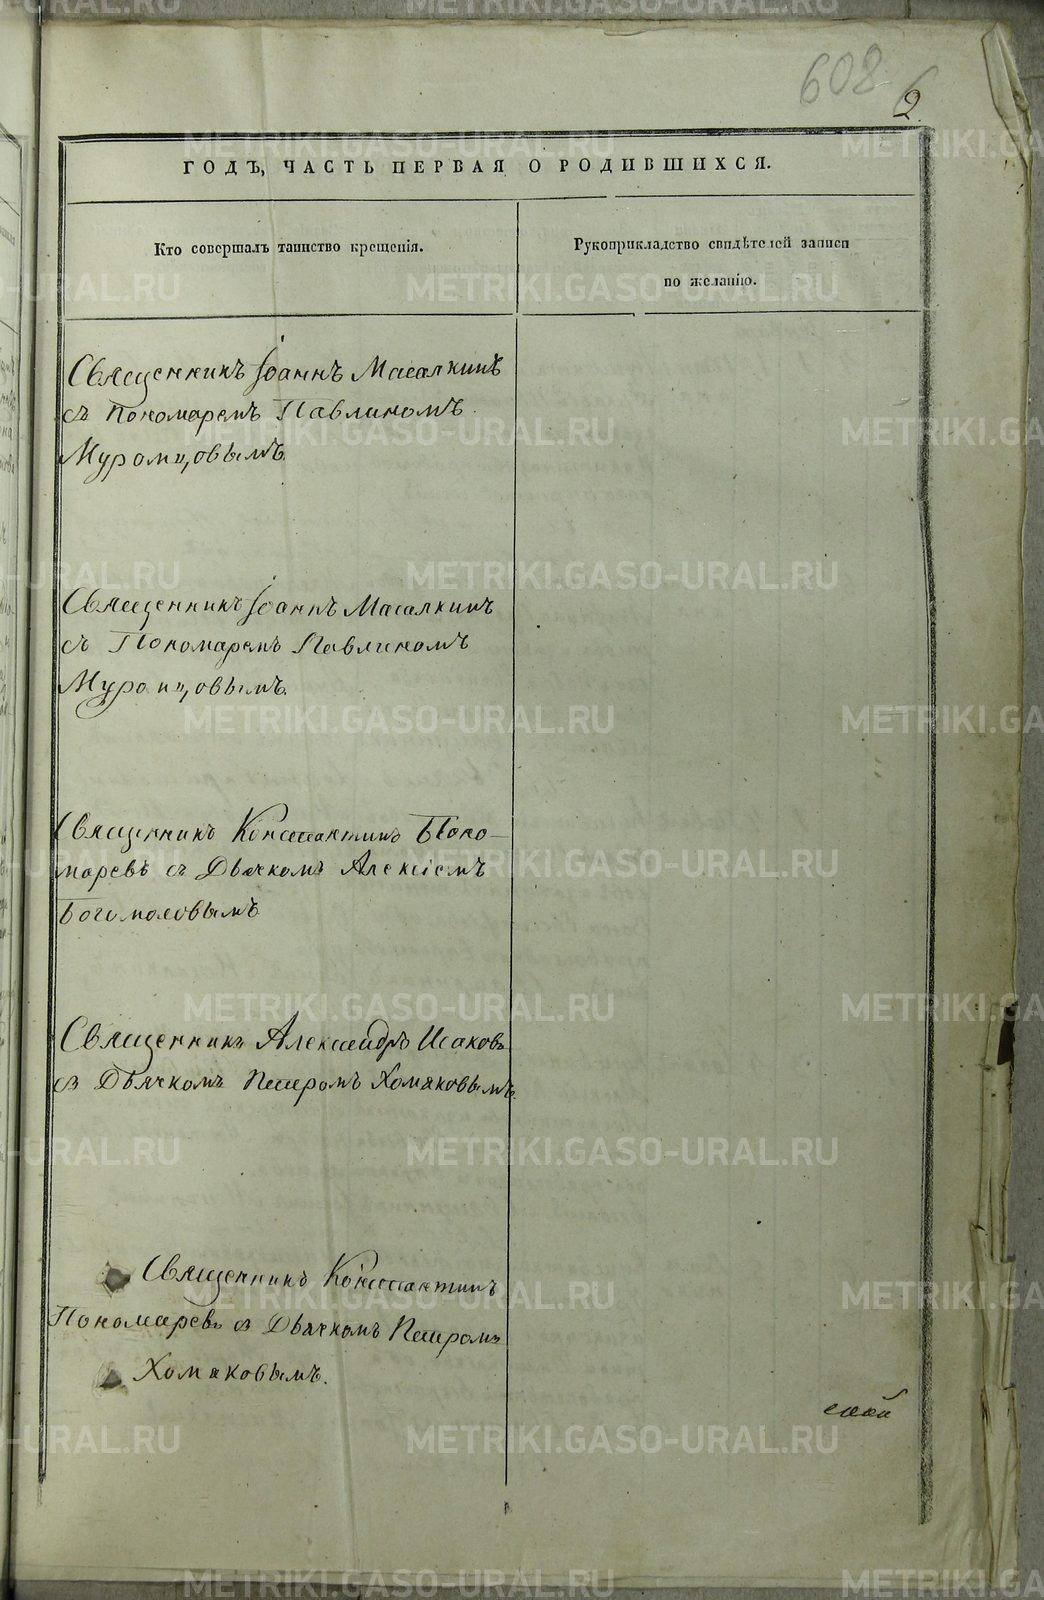 608
6
2
ГОДЪ, ЧАСТЬ ПЕРВАЯ О РОДИВШИХСЯ.
Кто совершалъ таинство крещенія.
Рукоприкладство свидѣтелей записи
по желанію.
Священникъ Іоаннъ Масалкинъ
съ Пономаремъ Павлиномъ
Муромцовымъ.
Священникъ Іоаннъ Масалкинъ
съ Пономаремъ Павлиномъ
Муромцовымъ.
Священникъ Константинъ Поно-
маревъ съ Дьячкомъ Алексіемъ
Богомоловымъ
Священникъ Александръ Исаковъ
съ Дьячкомъ Петромъ Хомяковымъ.
Священникъ Константинъ
Пономаревъ съ Дьячкомъ Петромъ
Хомяковымъ.
METRIKI.GASO-URAL.RU